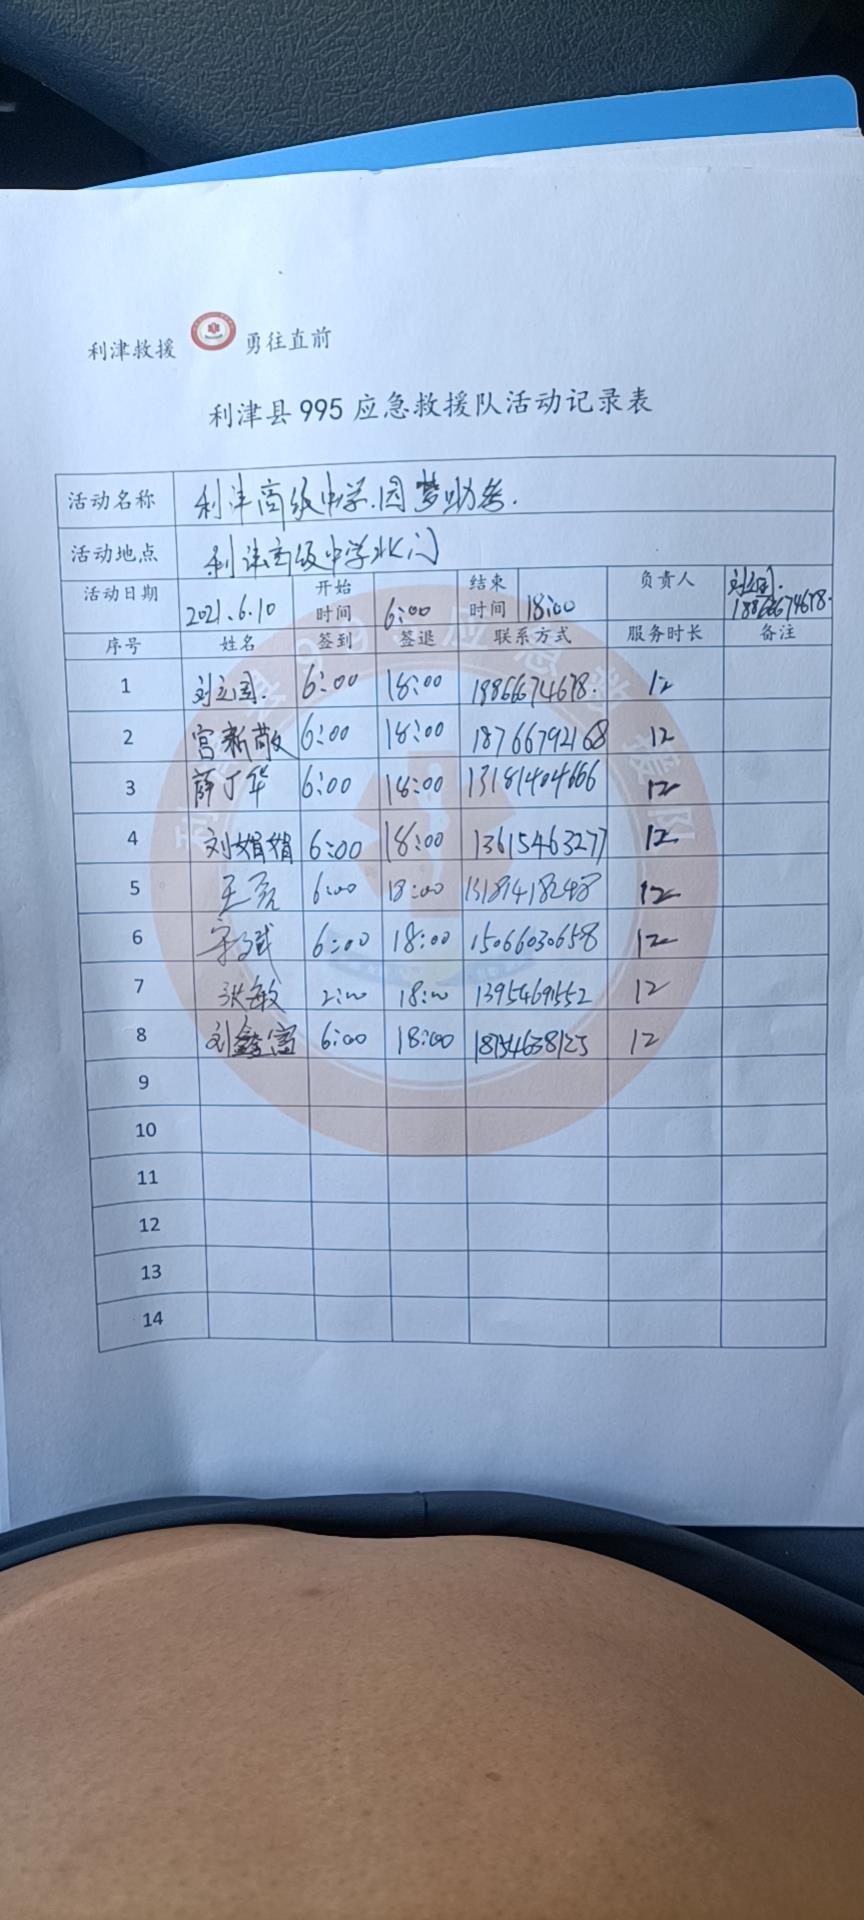 利津救援 勇往直前
利津县995应急救援队活动记录表
活动名称 利津高级中学.圆梦助考.
活动地点 利津高级中学北门
活动日期 2021.6.10 开始时间 6:00 结束时间 18:00 负责人 刘立国. 18866674678.
序号 姓名 签到 签退 联系方式 服务时长 备注
1 刘立国. 6:00 18:00 18866674678. 12
2 宫新敬 6:00 18:00 18766792168 12
3 薛丁华 6:00 18:00 13181404666 12
4 刘娟娟 6:00 18:00 13615463277 12
5 王亮 6:00 18:00 12
6 6:00 18:00 15066030658 12
7 张敏 18:00 13954691552 12
8 刘鑫富 6:00 18:00 12
9
10
11
12
13
14